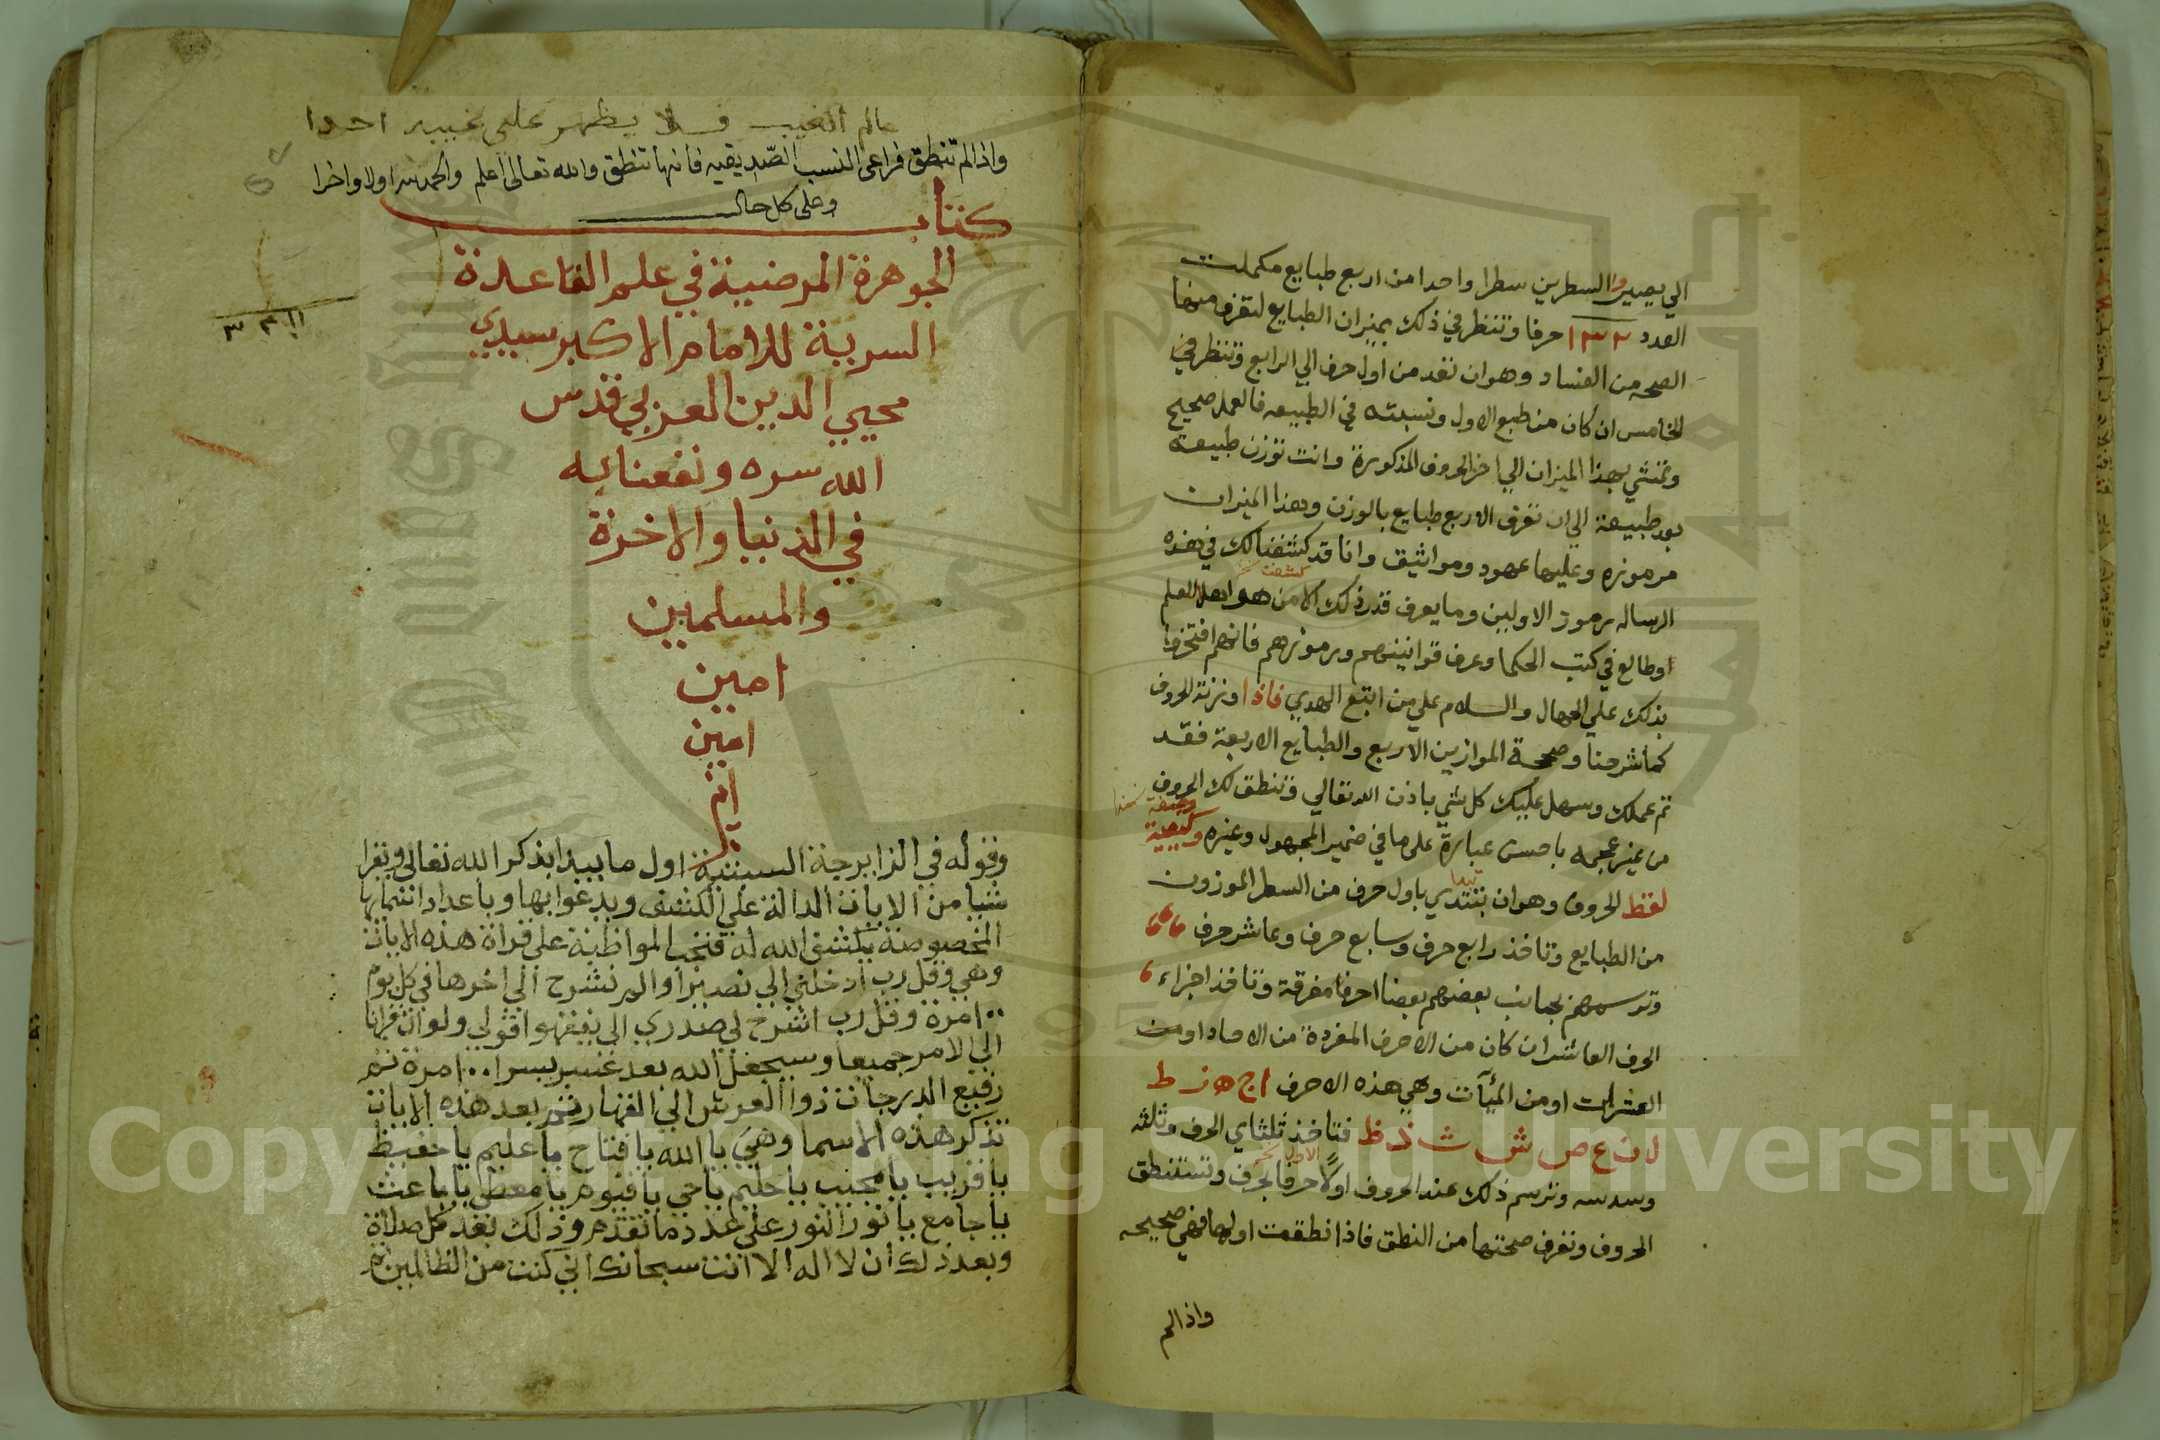 الي يصير السطرين سطرا واحدا من اربع طبايع مكملت
العدد ١٣٢ حرفا وتنظر في ذلك بميزان الطبايع لتعرف منها
الصحه من الفساد وهو ان تعد من اول حرف الي الرابع وتنظر في
الخامس ان كان من طبع الاول ونسبته في الطبيعه فالعمل صحيح
وتمشي بهذا الميزان الي اخر الحروف المذكورة وانت توزن طبيعة
بعد طبيعة الي ان تعرف الاربع طبايع بالوزن وهذا الميزان
مرموزه وعليها عهود ومواثيق وانا قد كشفنا لك في هذه
كشفت
الرساله رموز الاولين وما يعرف قدر ذلك الا من هو اهلا للعلم
اوطالع في كتب الحكما وعرف قوانينهم ورموزهم فانهم افتخروا
بذلك علي الجهال والسلام علي من اتبع الهدي فاذا اوزنت الحروف
كما شرحنا وصحة الموازين الاربع والطبايع الاربعة فقد
تم عملك وسهل عليك كل شي باذن الله تعالي وتنطق لك الحروف
من غير عجمه باحسن عبارة على ما في ضمير المجهول وغيره وكيفية
لقط الحروف وهو ان تبتدي باول حرف من السطر الموزون
من الطبايع وتاخذ رابع حرف وسابع حرف وعاشر حرف
وترسمهم بجانب بعضهم بعضا احرفا مفرقة وتاخذ اجزاء
الحرف العاشر ان كان من الاحرف المفردة من الاحاد او من
العشرات او من المئآت وهي هذه الاحرف ا ج ه ز ط
ل ن ع ص ش ث ذ ظ فتاخذ ثلثاي الحرف وثلثه
الاول
وسدسه وترسم ذلك عند الحروف اولا حرفا بحرف وتستنطق
الحروف وتعرف صحتها من النطق فاذا نطقت اولها فهي صحيحه
واذا لم
عالم الغيب فلا يظهر على غيبه احدا
واذا لم تنطق فراعى النسب الصديقيه فانها تنطق والله تعالى اعلم والحمد لله اولا واخرا
وعلى كل حال
كتاب
الجوهرة المرضية في علم القاعدة
السرية للامام الاكبر سيدي
محيي الدين العزبي قدس
الله سره ونفعنا به
في الدنيا والاخرة
والمسلمين
امين
امين
وقوله في الزايرجة السبتية اول ما يبدا بذكر الله تعالى ويقرا
شيا من الايات الدالة علي الكشف ويدعوا بها وباعداد اسمايها
المخصوصة يكشف الله له فتحب المواظبة على قراة هذه الايات
وهي وقل رب ادخلني الي نصيرا والم نشرح الي اخرها في كل يوم
١٠٠ مرة وقل رب اشرح لي صدري الي يفقهوا قولي ولو ان قرانا
الي الامر جميعا وسيجعل الله بعد عسر يسرا ١٠٠ مرة ثم
رفيع الدرجات ذو العرش الي القهار ثم بعد هذه الايات
تذكر هذه الاسما وهي يا الله يا فتاح يا عليم يا حفيظ
يا قريب يا مجيب يا حليم يا حي يا قيوم يا معطي يا باعث
يا جامع يا نور النور علي عدد ما تقدم وذلك بعد كل صلاة
وبعد ذلك ان لا اله الا انت سبحانك اني كنت من الظالمين
Copyright © King Saud University